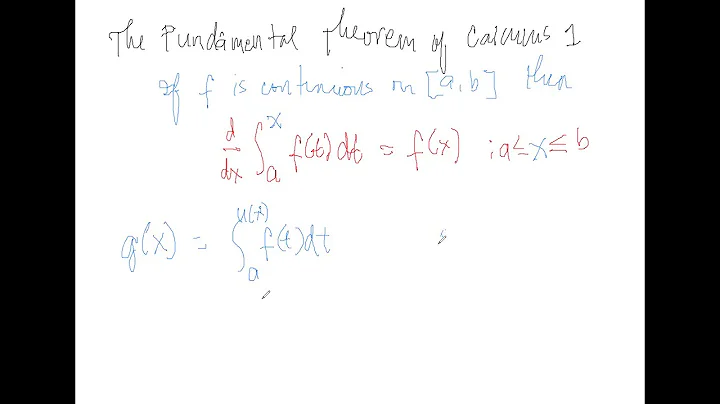 The Fundamental Theorem of Calculus 1
If f is continuous on [a,b] then
d/dx ∫_a^x f(t) dt = f(x) ; a ≤ x ≤ b
g(x) = ∫_a^{u(x)} f(t) dt